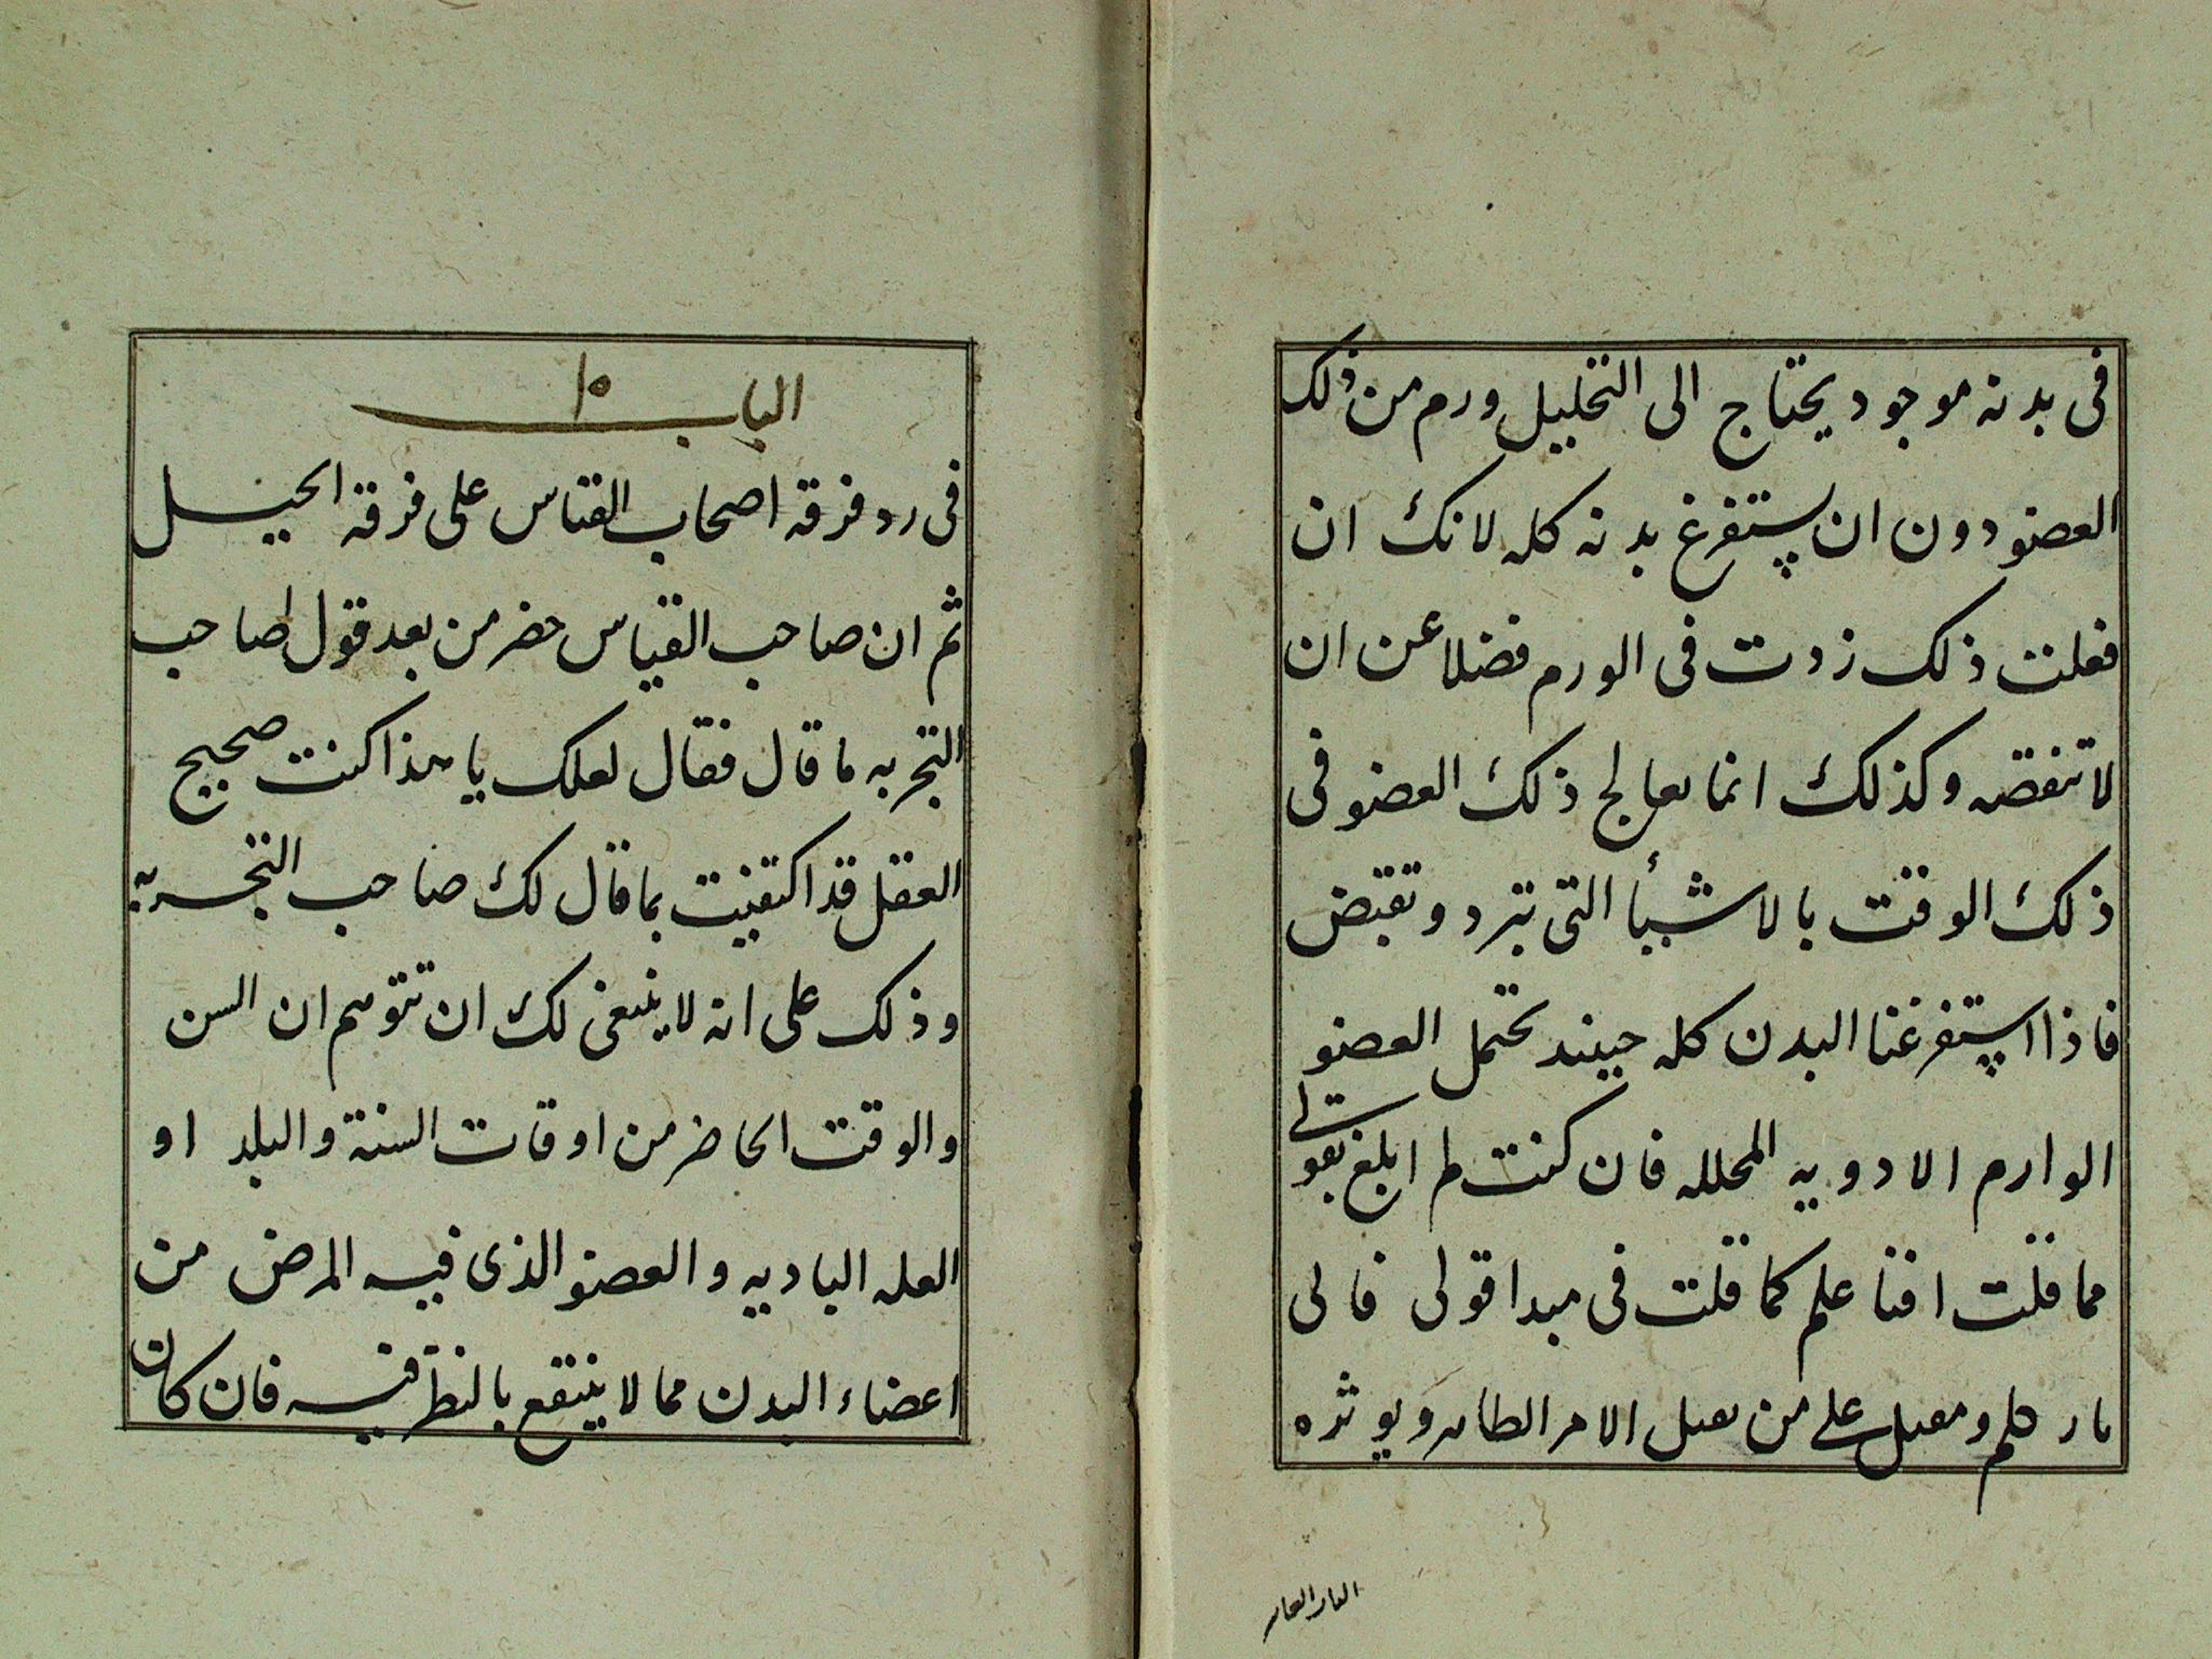 فى بدنه موجود يحتاج الى التحليل ورم من ذلك
العضو دون ان يستفرغ بدنه كله لانك ان
فعلت ذلك زدت فى الورم فضلا عن ان
لا تنقصه وكذلك انما يعالج ذلك العضو فى
ذلك الوقت بالاشيأ التى تبرد وتقبض
فاذا استفرغنا البدن كله حينئذ تحتمل العضو
الوارم الادويه المحلله فان كنت لم ابلغ بقولى
مما قلت اقناعكم كما قلت فى مبدا قولى فانى
تارككم ومقبل على من يقبل الامر الظاهر ويوثره
الباب ١٥
فى رد فرقه اصحاب القياس على فرقه الحيل
ثم ان صاحب القياس حضر من بعد قول صاحب
التجربه ما قال فقال لعلك يا هذا كنت صحيح
العقل قد اكتفيت بما قال لك صاحب التجربه
وذلك على انه لا ينبغى لك ان تتوهم ان السن
والوقت الحاضر من اوقات السنة والبلد او
العله الباديه والعضو الذى فيه المرض من
اعضاء البدن مما لا ينتفع بالنظر فيه فان كان